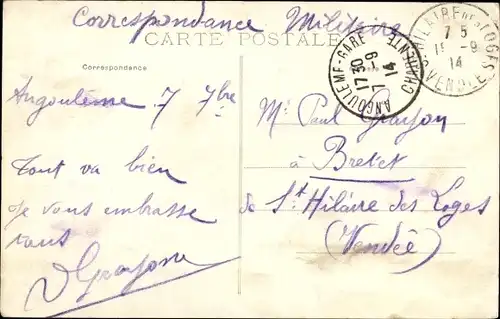 Correspondance Militaire
CARTE POSTALE
Correspondance
Angoulême 7 7bre
Tout va bien
Je vous embrasse
tous
ANGOULEME-GARE
17 30
7 -9
14
CHARENTE
7 5
9
14
VENDEE
Mr Paul
à Bretet
de St Hilaire des Loges
(Vendée)